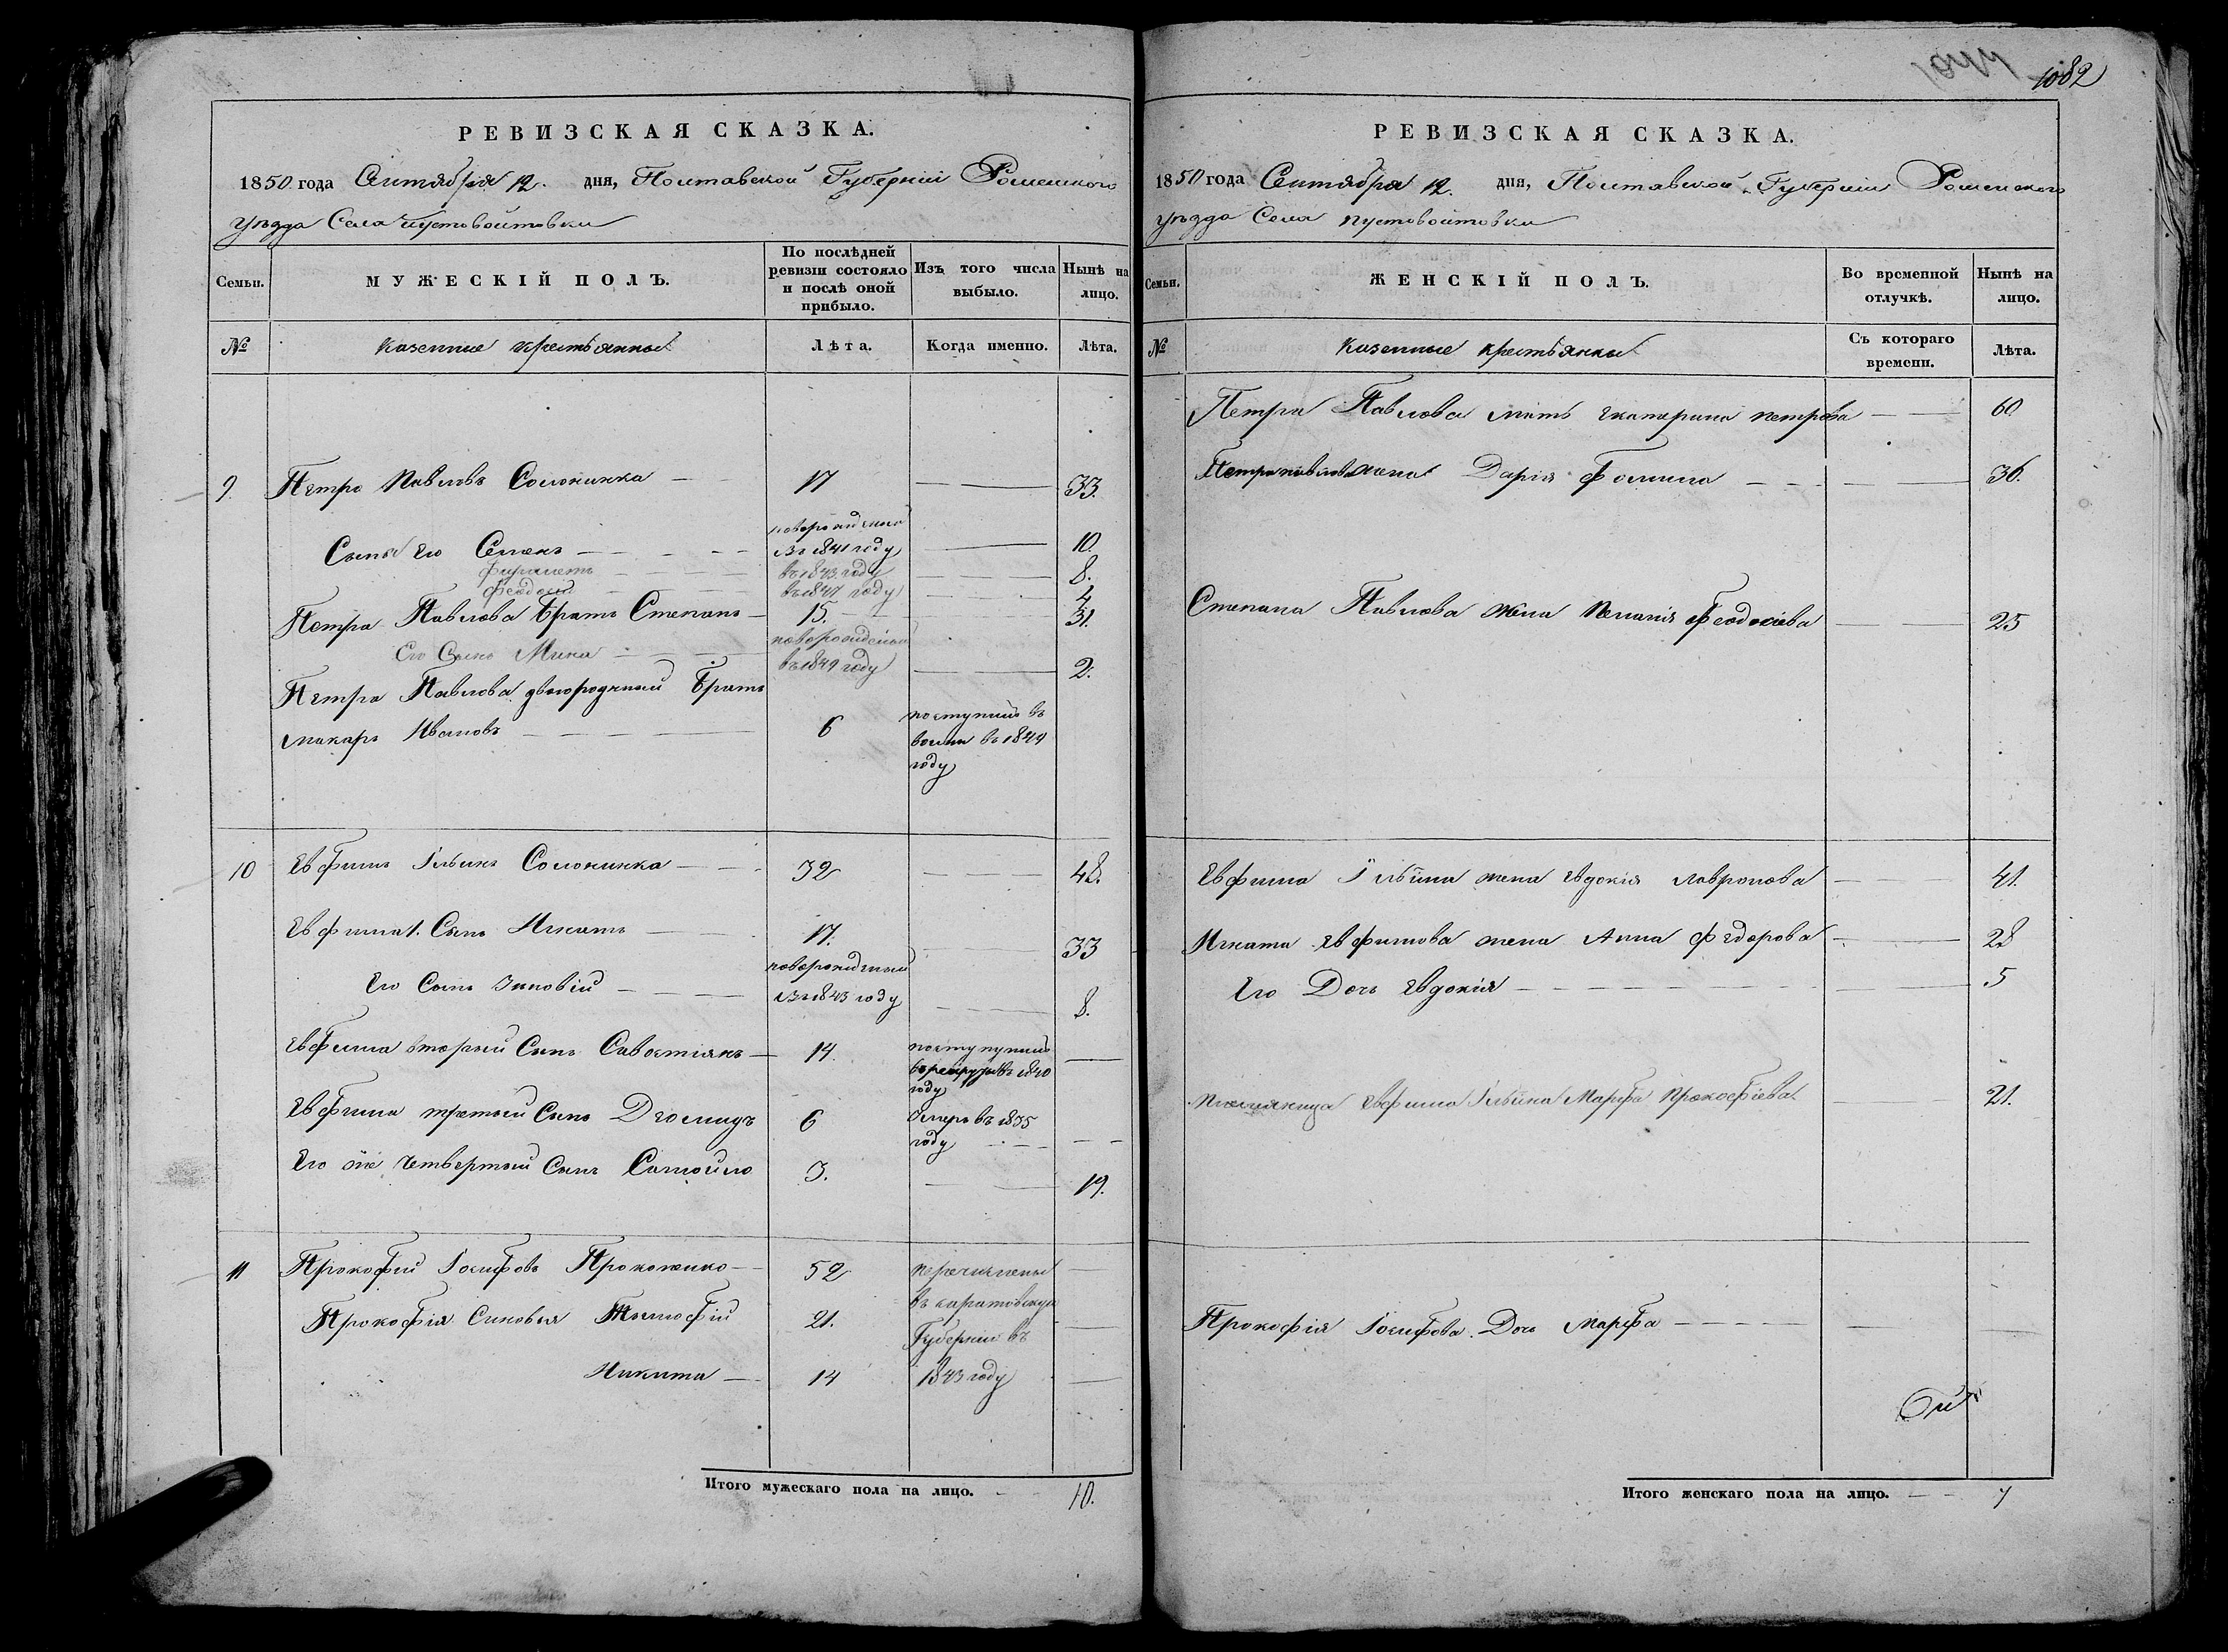 1082
РЕВИЗСКАЯ СКАЗКА.
1850 года Сентября 12. дня, Полтавской Губерніи Роменского
уѣзда Села Пустовойтовки
Семьи. МУЖЕСКІЙ ПОЛЪ. По послѣдней ревизіи состояло и послѣ оной прибыло. Изъ того числа выбыло. Нынѣ на лицо.
№ Казенные крестьянны Лѣта. Когда именно. Лѣта.
9 Петро Павловъ Солонинка 17 33.
Сыны его Семенъ новорожденной въ 1841 году 10.
въ 1843 году 8.
Феодосій въ 1847 году 4
Петра Павлова братъ Степанъ 15. 31.
Его Сынъ Мина новорожденъ въ 1849 году 2.
Петра Павлова двоюродный братъ
Макаръ Ивановъ 6 поступилъ въ воины въ 1844 году
10 Евфимъ Ильинъ Солонинка 32 48.
Евфима 1. Сынъ Игнатъ 17. 33
Его Сынъ Зиновій новорожденный въ 1843 году 8.
Евфима вторый Сынъ Савостіянъ 14. поступилъ в рекруты въ 1840 году
Евфима третый Сынъ Діомидъ 6 Умеръ въ 1835 году
Его же четвертый Сынъ Самойло 3. 19.
11 Прокофій Іосифовъ Прокопенко 52 перечислены
Прокофія Синовья Тимофій 21. въ саратовскую Губернію въ
Никита 14 1843 году
Итого мужескаго пола на лицо. 10.
РЕВИЗСКАЯ СКАЗКА.
1850 года Сентября 12. дня, Полтавской Губерніи Роменского
уѣзда Села Пустовойтовки
Семьи. ЖЕНСКІЙ ПОЛЪ. Во временной отлучкѣ. Нынѣ на лицо.
№ Казенные крестьянки Съ котораго времени. Лѣта.
Петра Павлова мать Екатерина петрова 60
Петра павлова жена Дарія Фомина 36.
Степана Павлова жена Меланія Феодосіева 25
Евфима Ильина жена Евдокія 41.
Игната Евфимова жена Анна Федорова 28
Его Дочь Евдокія 5
племянница Евфима Ильина Марфа Прокофіева 21.
Прокофія Іосифова Дочь Марфа
Итого женскаго пола на лицо. 7